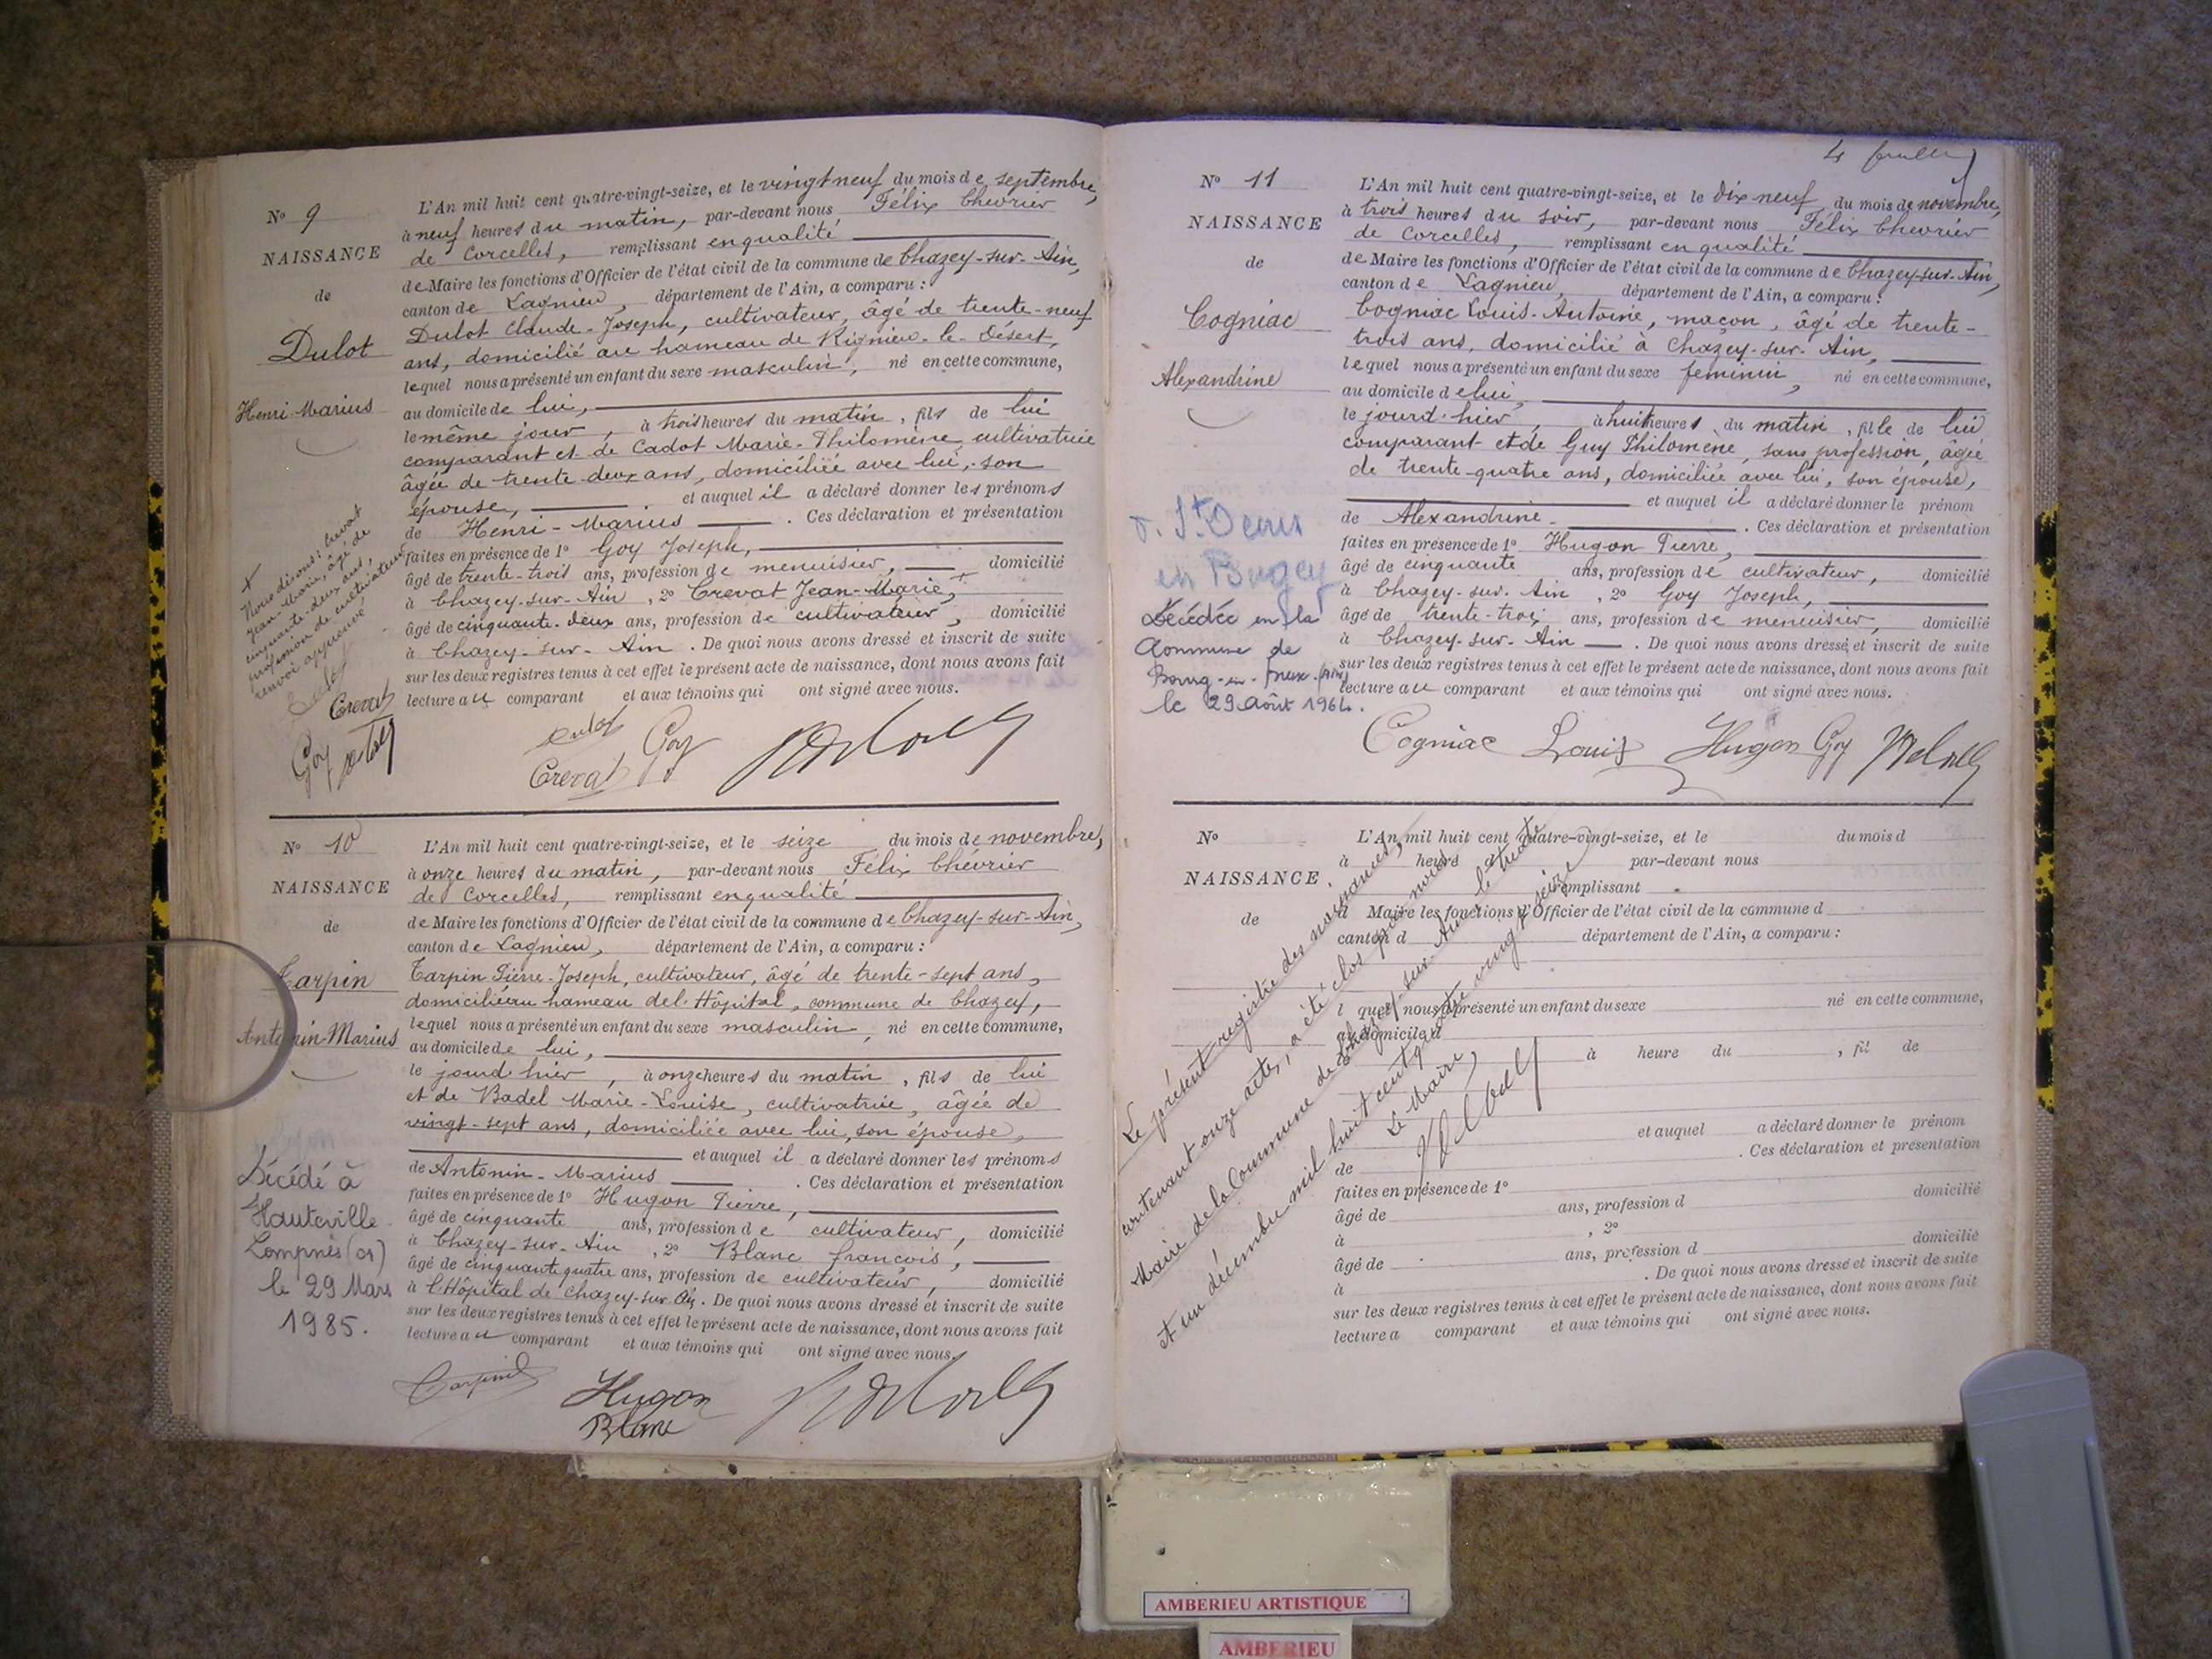 N° 9
NAISSANCE
de
Dulot
Henri-Marius
L'An mil huit cent quatre-vingt-seize, et le vingt neuf du mois de septembre,
à neuf heures du matin, par-devant nous Félix Chevrier
de Corcelles, remplissant en qualité
de Maire les fonctions d'Officier de l'état civil de la commune de Chazey-sur-Ain,
canton de Lagnieu, département de l'Ain, a comparu :
Dulot Claude-Joseph, cultivateur, âgé de trente-neuf
ans, domicilié au hameau de Rignieu-le-Désert,
lequel nous a présenté un enfant du sexe masculin, né en cette commune,
au domicile de lui,
le même jour, à trois heures du matin, fils de lui
comparant et de Cadot Marie-Philomène, cultivatrice
âgée de trente-deux ans, domiciliée avec lui, son
épouse, et auquel il a déclaré donner les prénoms
de Henri-Marius. Ces déclaration et présentation
faites en présence de 1° Goy Joseph,
âgé de trente-trois ans, profession de menuisier, domicilié
à Chazey-sur-Ain, 2° Crevat Jean-Marie, +
âgé de cinquante-deux ans, profession de cultivateur, domicilié
à Chazey-sur-Ain. De quoi nous avons dressé et inscrit de suite
sur les deux registres tenus à cet effet le présent acte de naissance, dont nous avons fait
lecture au comparant et aux témoins qui ont signé avec nous.
+
Nous disons : Crevat
Jean-Marie, âgé de
cinquante-deux ans,
profession de cultivateur
renvoi approuvé
Dulot
Crevat
Goy
Dulot Goy
Crevat
N° 10
NAISSANCE
de
Tarpin
Antonin-Marius
L'An mil huit cent quatre-vingt-seize, et le seize du mois de novembre,
à onze heures du matin, par-devant nous Félix Chévrier
de Corcelles, remplissant en qualité
de Maire les fonctions d'Officier de l'état civil de la commune de Chazey-sur-Ain,
canton de Lagnieu, département de l'Ain, a comparu :
Tarpin Pierre-Joseph, cultivateur, âgé de trente-sept ans,
domicilié au hameau de l'Hôpital, commune de Chazey,
lequel nous a présenté un enfant du sexe masculin, né en cette commune,
au domicile de lui,
le jour d'hier, à onze heures du matin, fils de lui
et de Badel Marie-Louise, cultivatrice, âgée de
vingt-sept ans, domiciliée avec lui, son épouse,
et auquel il a déclaré donner les prénoms
de Antonin-Marius. Ces déclaration et présentation
faites en présence de 1° Hugon Pierre,
âgé de cinquante ans, profession de cultivateur, domicilié
à Chazey-sur-Ain, 2° Blanc françois,
âgé de cinquante quatre ans, profession de cultivateur, domicilié
à l'Hôpital de Chazey-sur-Ain. De quoi nous avons dressé et inscrit de suite
sur les deux registres tenus à cet effet le présent acte de naissance, dont nous avons fait
lecture au comparant et aux témoins qui ont signé avec nous.
Décédé à
Hauteville
Lompnès (01)
le 29 Mars
1985.
Tarpin
Hugon
Blanc
4
N° 11
NAISSANCE
de
Cogniac
Alexandrine
L'An mil huit cent quatre-vingt-seize, et le dix neuf du mois de novembre,
à trois heures du soir, par-devant nous Félix Chevrier
de Corcelles, remplissant en qualité
de Maire les fonctions d'Officier de l'état civil de la commune de Chazey-sur-Ain,
canton de Lagnieu, département de l'Ain, a comparu :
Cogniac Louis-Antoine, maçon, âgé de trente-
trois ans, domicilié à Chazey-sur-Ain,
lequel nous a présenté un enfant du sexe féminin, né en cette commune,
au domicile de lui,
le jour d'hier, à huit heures du matin, fille de lui
comparant et de Guy Philomène, sans profession, âgée
de trente-quatre ans, domiciliée avec lui, son épouse,
et auquel il a déclaré donner le prénom
de Alexandrine. Ces déclaration et présentation
faites en présence de 1° Hugon Pierre,
âgé de cinquante ans, profession de cultivateur, domicilié
à Chazey-sur-Ain, 2° Goy Joseph,
âgé de trente-trois ans, profession de menuisier, domicilié
à Chazey-sur-Ain. De quoi nous avons dressé et inscrit de suite
sur les deux registres tenus à cet effet le présent acte de naissance, dont nous avons fait
lecture au comparant et aux témoins qui ont signé avec nous.
St Denis
en Bugey
Décédée en la
Commune de
Bourg-en-Bresse (Ain)
le 29 Août 1964.
Cogniac Louis Hugon Goy
N°
NAISSANCE
de
L'An mil huit cent quatre-vingt-seize, et le du mois d
à heure d par-devant nous
remplissant
d Maire les fonctions d'Officier de l'état civil de la commune d
canton d département de l'Ain, a comparu :
l quel nous a présenté un enfant du sexe né en cette commune,
au domicile d
à heure du , fil de
et auquel a déclaré donner le prénom
de . Ces déclaration et présentation
faites en présence de 1°
âgé de ans, profession d domicilié
à , 2°
âgé de ans, profession d domicilié
à . De quoi nous avons dressé et inscrit de suite
sur les deux registres tenus à cet effet le présent acte de naissance, dont nous avons fait
lecture a comparant et aux témoins qui ont signé avec nous.
Le présent registre des naissances,
contenant onze actes, a été clos par nous
Maire de la Commune de Chazey-sur-Ain le trente
et un décembre mil huit cent quatre vingt seize
Le Maire,
AMBERIEU ARTISTIQUE
AMBERIEU